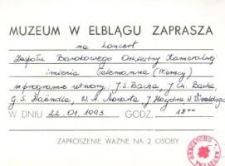 MUZEUM W ELBLĄGU ZAPRASZA
na koncert
Zespołu Barokowego Orkiestry Kameralnej
imienia Telemanna (Niemcy)
w programie utwory: J. S. Bacha, J. Ch. Bacha,
G. F. Haendla, W. A. Mozarta, J. Haydna i A. Vivaldiego
W DNIU 22.01.1993 GODZ. 18⁰⁰
ZAPROSZENIE WAŻNE NA 2 OSOBY